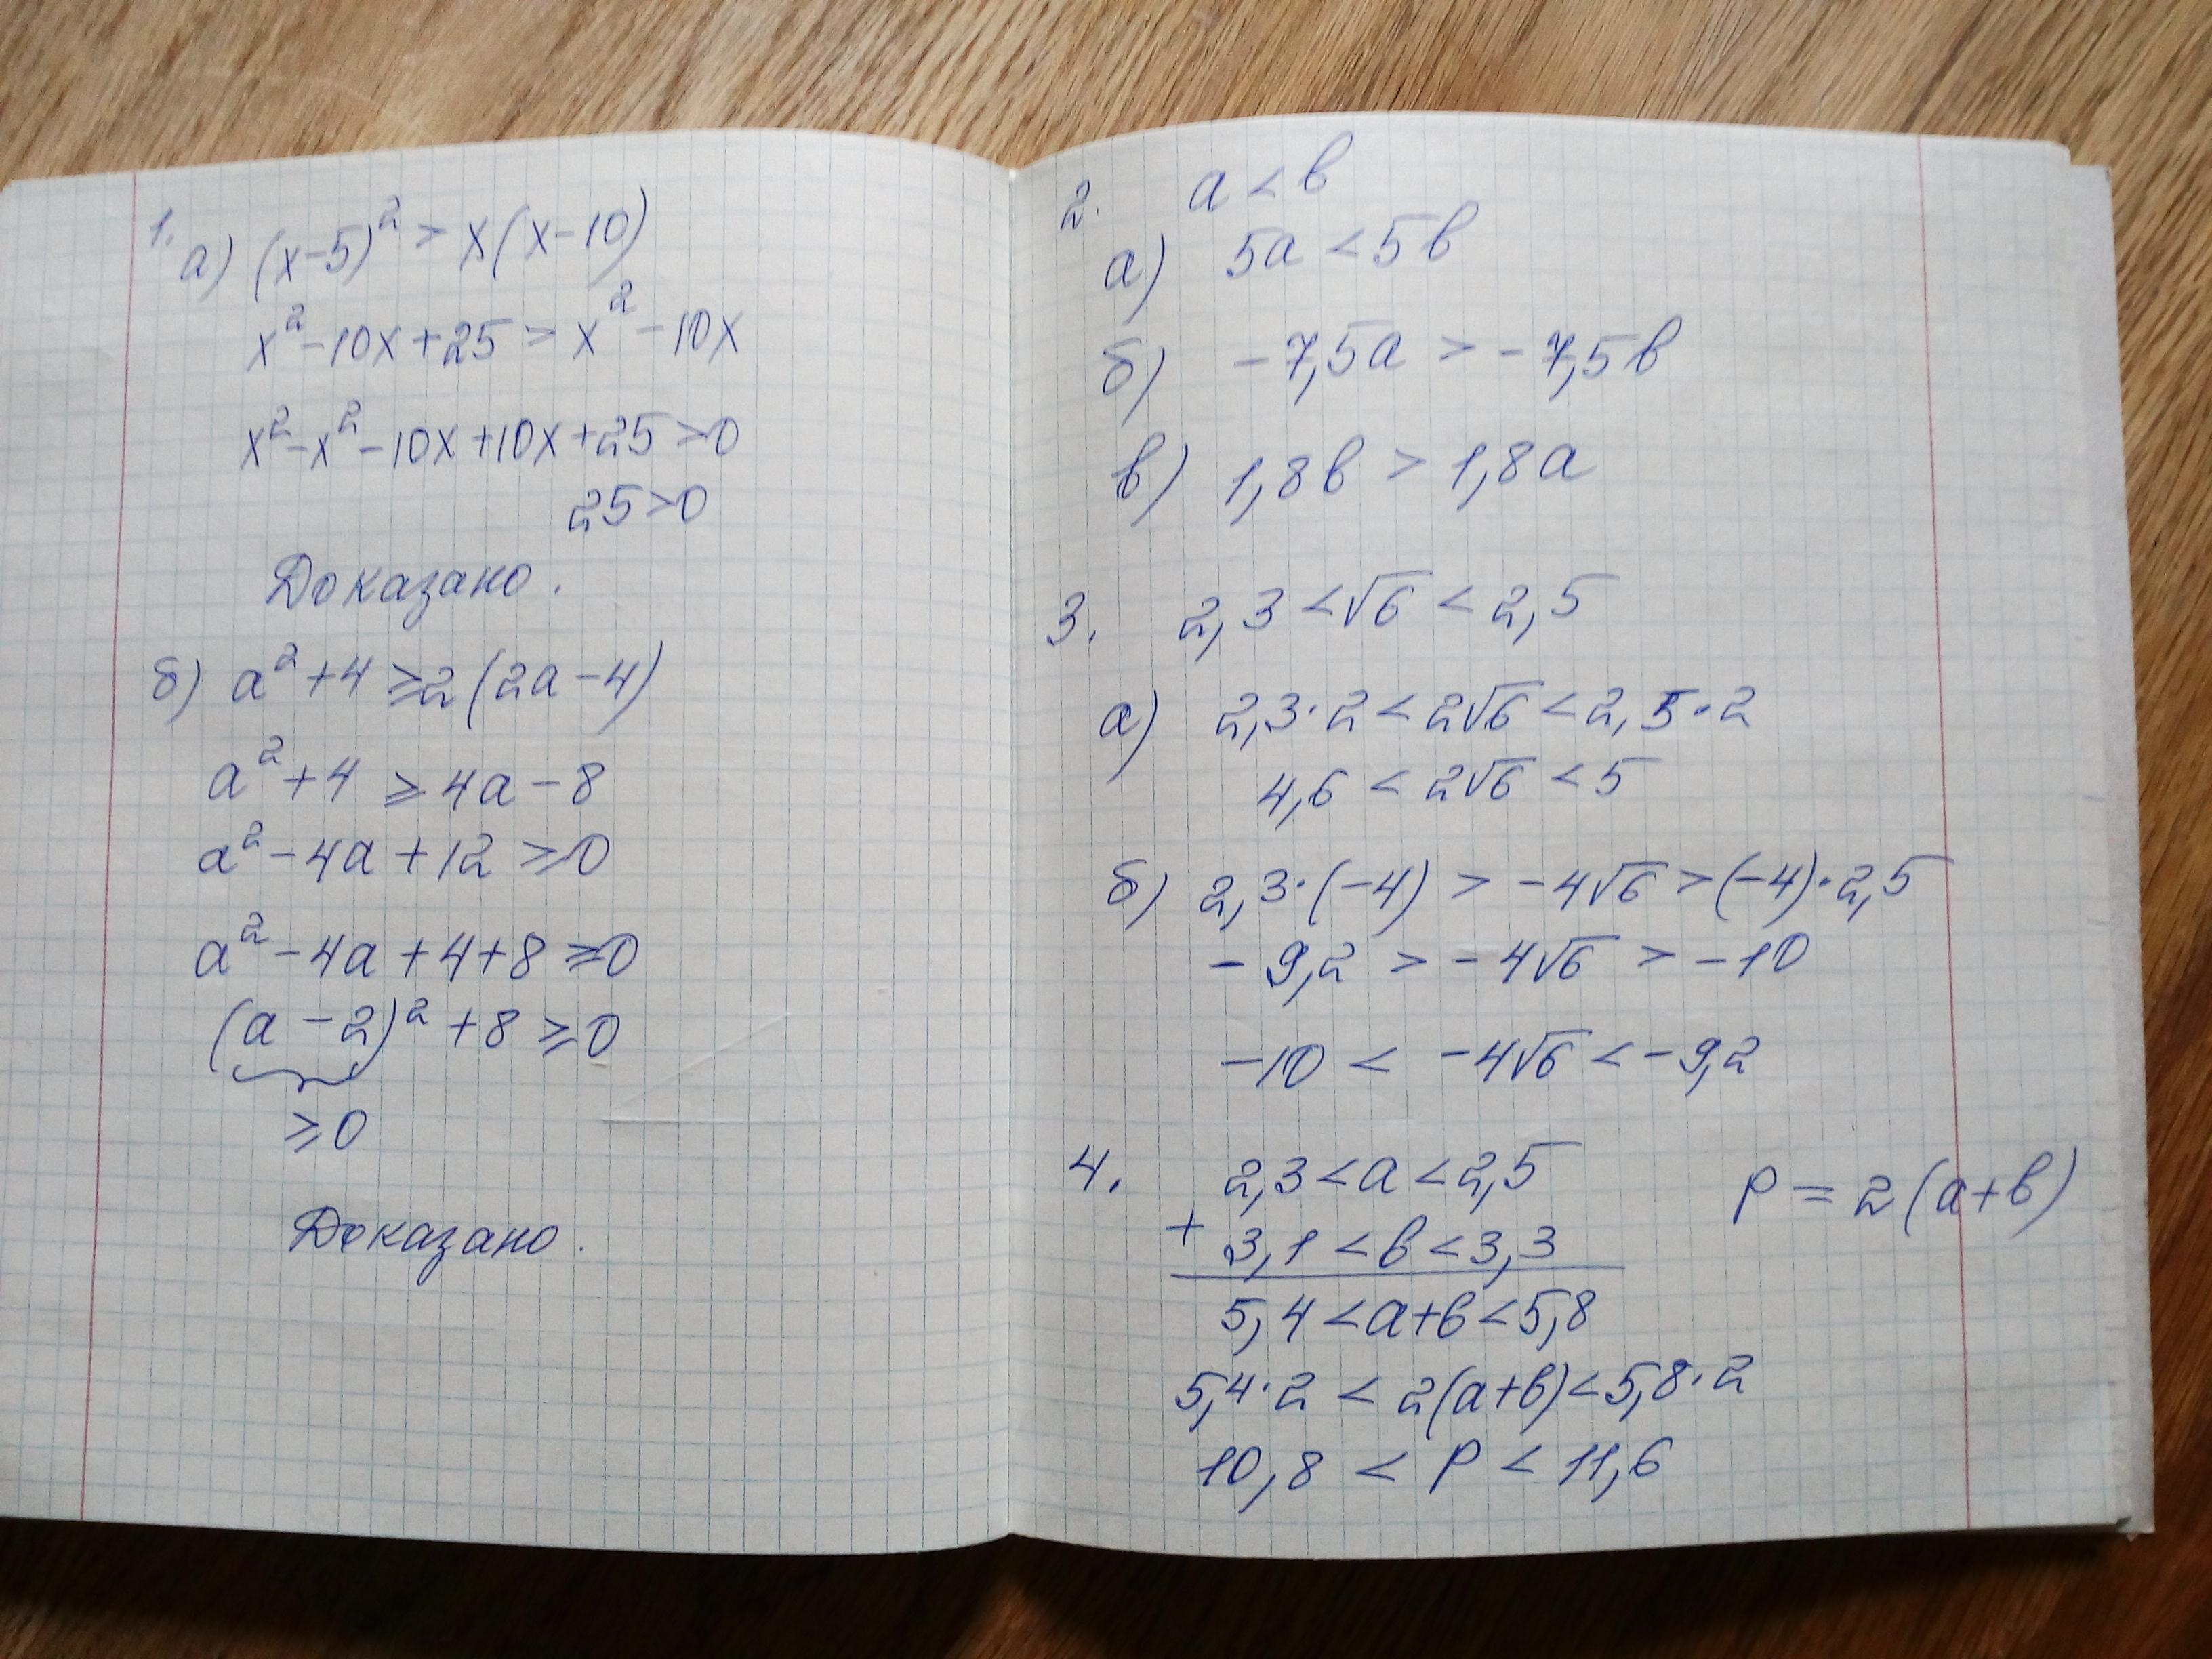 1.
а) (x-5)² > x(x-10)
x² - 10x + 25 > x² - 10x
x² - x² - 10x + 10x + 25 > 0
25 > 0
Доказано.
б) a² + 4 ≥ 2(2a - 4)
a² + 4 ≥ 4a - 8
a² - 4a + 12 ≥ 0
a² - 4a + 4 + 8 ≥ 0
(a - 2)² + 8 ≥ 0
≥ 0
Доказано.
2. a < b
а) 5a < 5b
б) -7,5a > -7,5b
в) 1,8b > 1,8a
3. 2,3 < √6 < 2,5
а) 2,3·2 < 2√6 < 2,5·2
4,6 < 2√6 < 5
б) 2,3·(-4) > -4√6 > (-4)·2,5
-9,2 > -4√6 > -10
-10 < -4√6 < -9,2
4. 2,3 < a < 2,5 P = 2(a+b)
+ 3,1 < b < 3,3
5,4 < a+b < 5,8
5,4·2 < 2(a+b) < 5,8·2
10,8 < P < 11,6